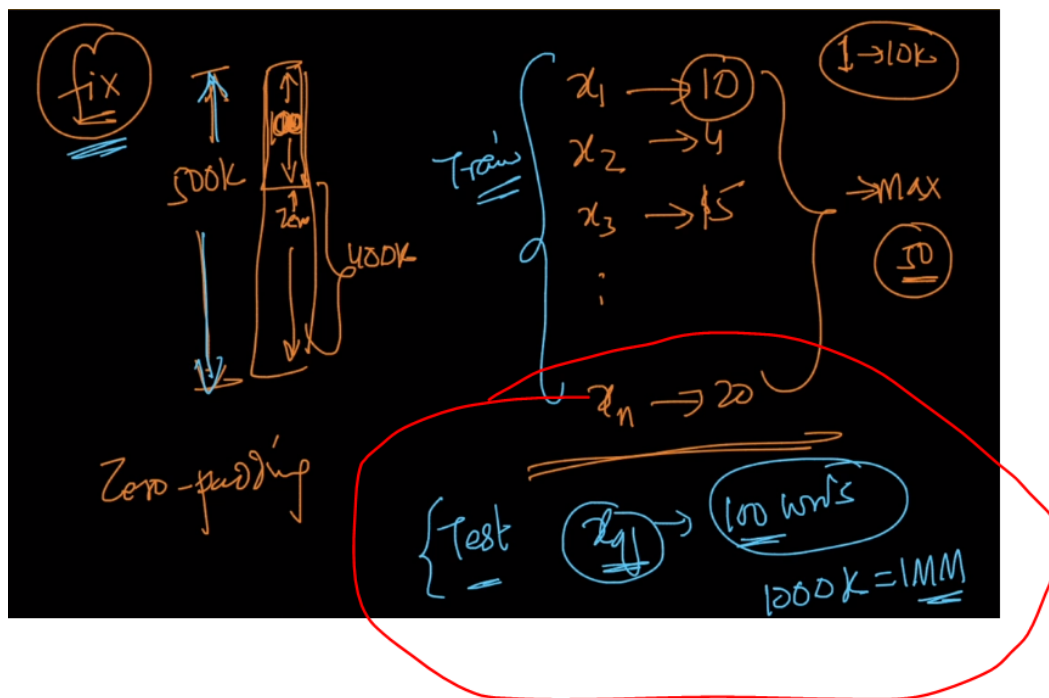 fix
500K
Zero
400K
Zero-padding
Train
x1 → 10
x2 → 4
x3 → 15
⋮
xn → 20
1 → 10K
→ Max
50
Test xq → 100 words
1000K = 1MM